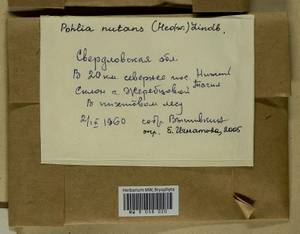 Pohlia nutans (Hedw.) Lindb.
Свердловская обл.
В 20 км севернее пос. Нижний
Тагил
Склон г. Жеребцовой
В пихтовом лесу
2/IX 1960 собр.
опр. Е. Игнатова, 2005
Herbarium MW, Bryophyta